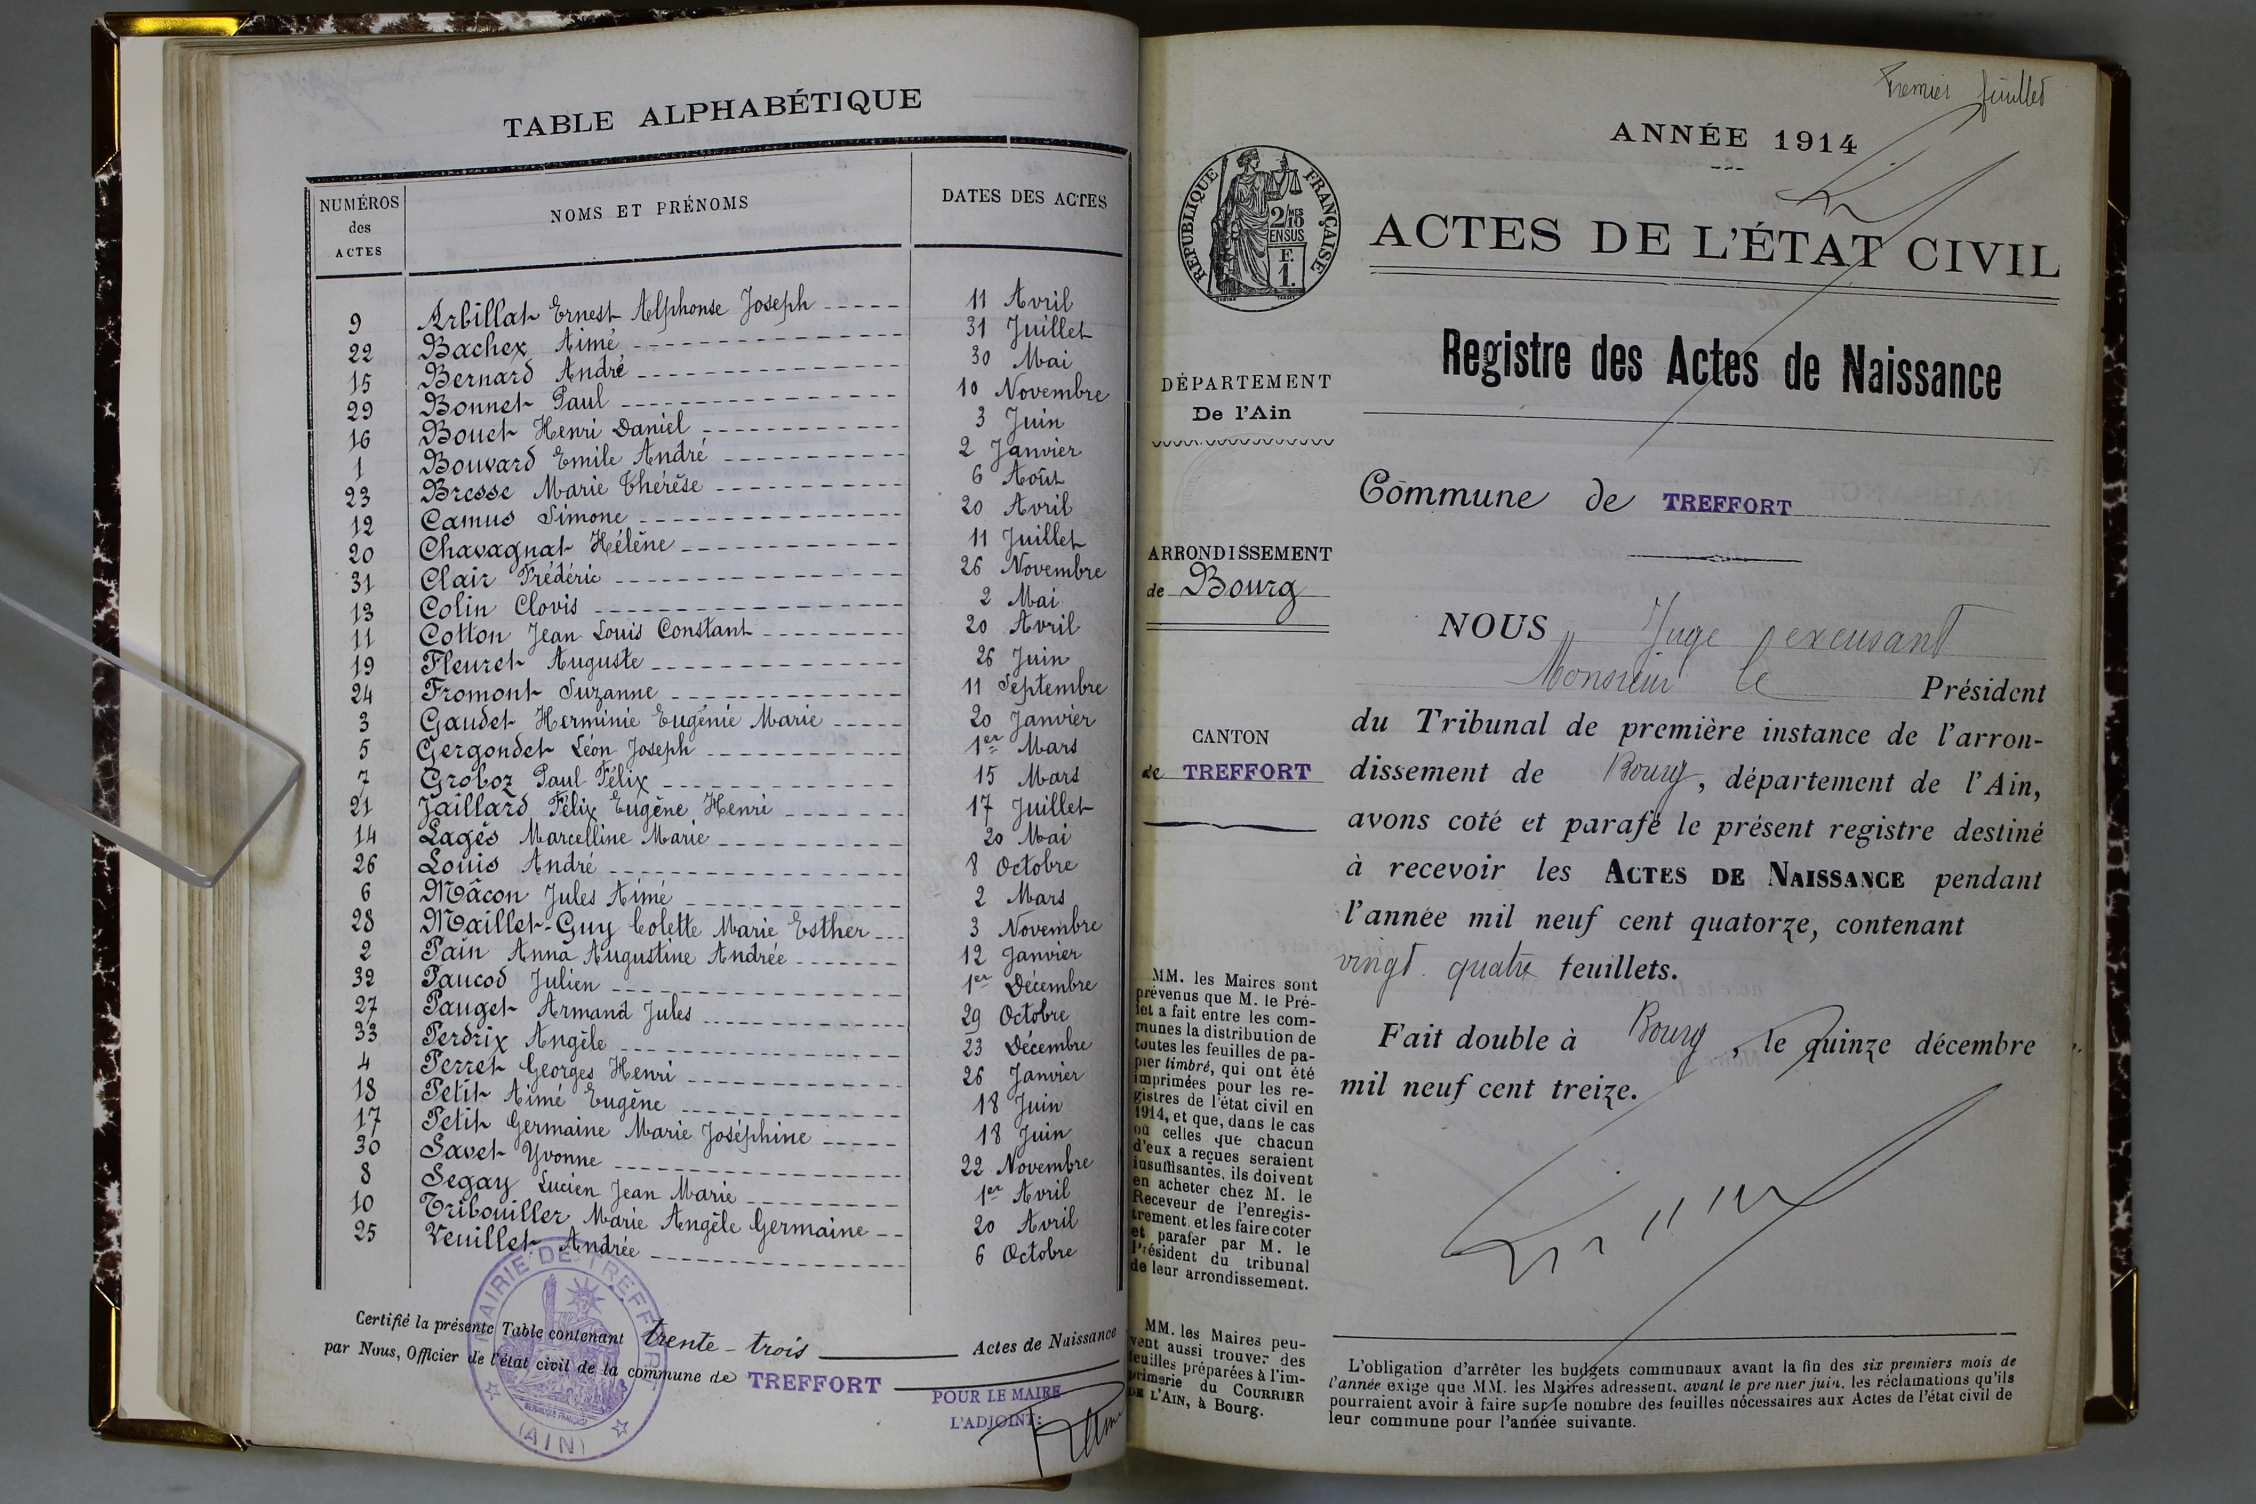 TABLE ALPHABÉTIQUE
NUMÉROS des ACTES
NOMS ET PRÉNOMS
DATES DES ACTES
9 Arbillat Ernest Alphonse Joseph 11 Avril
22 Bachex Aimé 31 Juillet
15 Bernard André 30 Mai
29 Bonnet Paul 10 Novembre
16 Bouet Henri Daniel 3 Juin
1 Bouvard Emile André 2 Janvier
23 Bresse Marie Thérèse 6 Août
12 Camus Simone 20 Avril
20 Chavagnat Hélène 11 Juillet
31 Clair Frédéric 26 Novembre
13 Colin Clovis 2 Mai
11 Cotton Jean Louis Constant 20 Avril
19 Fleuret Auguste 26 Juin
24 Fromont Suzanne 11 Septembre
3 Gaudet Herminie Eugénie Marie 20 Janvier
5 Gergondet Léon Joseph 1er Mars
7 Groboz Paul Félix 15 Mars
21 Jaillard Félix Eugène Henri 17 Juillet
14 Lagès Marcelline Marie 20 Mai
26 Louis André 8 Octobre
6 Mâcon Jules Aimé 2 Mars
28 Maillet-Guy Colette Marie Esther 3 Novembre
2 Pain Anna Augustine Andrée 12 Janvier
32 Paucod Julien 1er Décembre
27 Pauget Armand Jules 29 Octobre
33 Perdrix Angèle 23 Décembre
4 Perret Georges Henri 26 Janvier
18 Petit Aimé Eugène 18 Juin
17 Petit Germaine Marie Joséphine 18 Juin
30 Savet Yvonne 22 Novembre
8 Segay Lucien Jean Marie 1er Avril
10 Tribouiller Marie Angèle Germaine 20 Avril
25 Veuillet Andrée 6 Octobre
MAIRIE DE TREFFORT
RÉPUBLIQUE FRANÇAISE
(AIN)
Certifié la présente Table contenant trente-trois Actes de Naissance
par Nous, Officier de l'état civil de la commune de TREFFORT
POUR LE MAIRE
L'ADJOINT:
Premier feuillet
ANNÉE 1914
RÉPUBLIQUE FRANÇAISE
2/10 MES
EN SUS
F.
1.
ACTES DE L'ÉTAT CIVIL
Registre des Actes de Naissance
DÉPARTEMENT
De l'Ain
Commune de TREFFORT
ARRONDISSEMENT
de Bourg
CANTON
de TREFFORT
NOUS Juge excusant
Monsieur le Président
du Tribunal de première instance de l'arron-
dissement de Bourg, département de l'Ain,
avons coté et parafé le présent registre destiné
à recevoir les ACTES DE NAISSANCE pendant
l'année mil neuf cent quatorze, contenant
vingt quatre feuillets.
Fait double à Bourg, le quinze décembre
mil neuf cent treize.
MM. les Maires sont
prévenus que M. le Pré-
fet a fait entre les com-
munes la distribution de
toutes les feuilles de pa-
pier timbré, qui ont été
imprimées pour les re-
gistres de l'état civil en
1914, et que, dans le cas
où celles que chacun
d'eux a reçues seraient
insuffisantes, ils doivent
en acheter chez M. le
Receveur de l'enregis-
trement, et les faire coter
et parafer par M. le
Président du tribunal
de leur arrondissement.
MM. les Maires peu-
vent aussi trouver des
feuilles préparées à l'im-
primerie du COURRIER
DE L'AIN, à Bourg.
L'obligation d'arrêter les budgets communaux avant la fin des six premiers mois de
l'année exige que MM. les Maires adressent, avant le premier juin, les réclamations qu'ils
pourraient avoir à faire sur le nombre des feuilles nécessaires aux Actes de l'état civil de
leur commune pour l'année suivante.